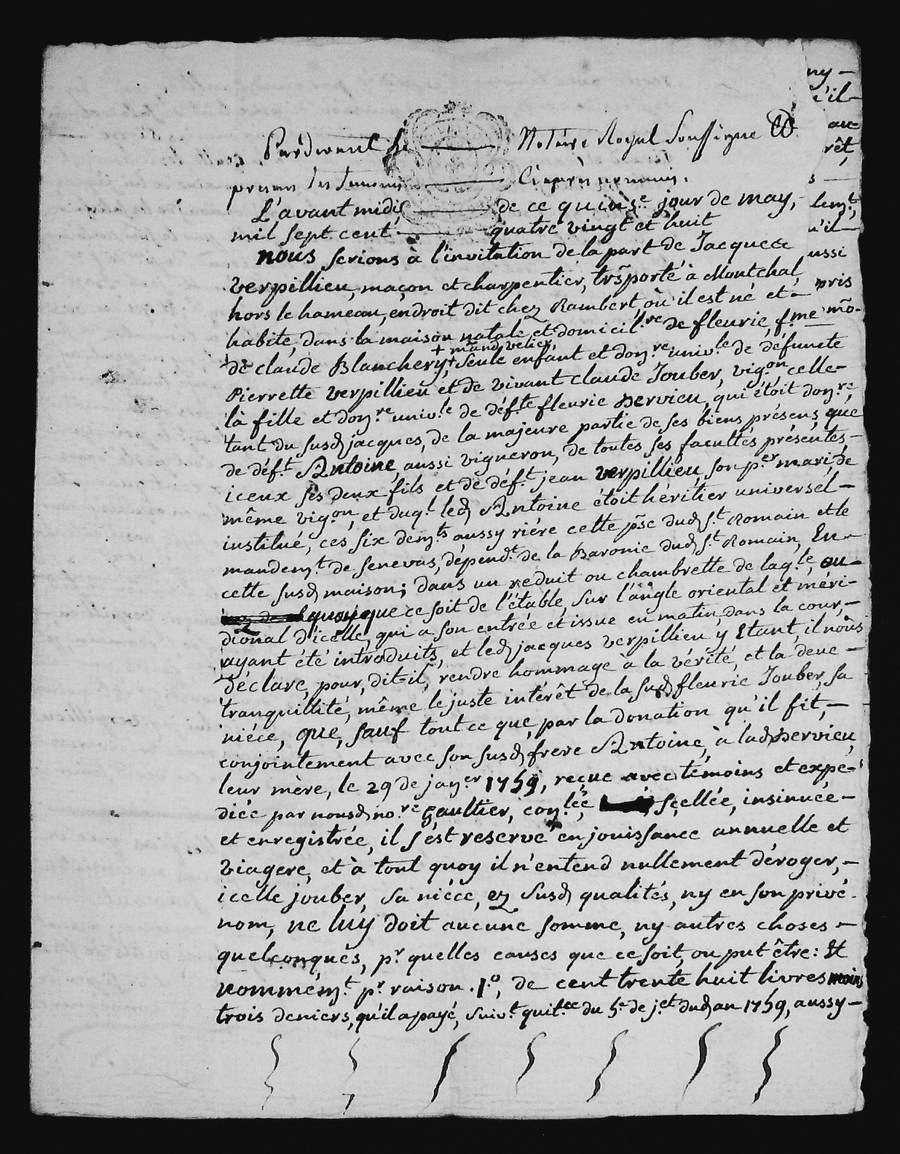 Pardevant le Notaire Royal Soussigné &
présens les témoins cy après nommés.
L'avant midi de ce quinze jour de may,
mil sept cent quatre vingt et huit
nous serions à l'invitation de la part de Jacques
verpillieu, maçon et charpentier, trãsporté à Montchal
hors le hameau, endroit dit chez Rambert, où il est né et
habite, dans la maison natale et domicil.re de fleurie f.me mõ-
+ mand Velier,
de claude Blanchery,+ seule enfant et don.re univ.le de défuncte
Pierrette verpillieu et de vivant claude Jouber, vig.on celle-
là fille et don.re univ.le de déf.te fleurie hervieu, qui étoit don.re
tant du susd jacques, de la majeure partie de ses biens présens, que
de déf.t Antoine aussi vigneron, de toutes ses facultés présentes-
iceux ses deux fils et de déf.t jean verpillieu, son p.er mari de
même vig.on, et duq.l led Antoine étoit héritier universel-
institué, ces six dem.ts aussy riére cette p.sse dud S.t Romain et le
mandem.t de senevas, dépend.t de la Baronie dud S.t Romain, En-
cette susd maison; dans un reduit ou chambrette de laq.le, au-
quoyque ce soit de l'étable, sur l'angle oriental et méri-
dional d'icelle, qui a son entrée et issue en matin, dans la cour,-
ayant été introduits, et led jacques verpillieu y Etant, il nous
déclare, pour, dit-il, rendre hommage à la vérité, et la deue-
tranquillité, même le juste intérêt de la susd fleurie Jouber, sa
niéce, que, sauf tout ce que, par la donation qu'il fit,-
conjointement avec son susd frere Antoine, à lad hervieu,
leur mère, le 29 de jan.er 1759, reçue avec témoins et expé-
diée par nousd no.re Gaultier, con.lée, scellée, insinuée-
et enregistrée, il s'est reservé en jouissance annuelle et
viagere, et à tout quoy il n'entend nullement déroger,-
icelle jouber, sa niéce, ez susd qualités, ny en son privé
nom, ne luy doit aucune somme, ny autres choses-
quelconques, p.r quelles causes que ce soit, ou put être: Et
nommém.t p.r raison. 1.o, de cent trente huit livres moins
trois deniers, qu'il a payé, suiv.t quit.ce du 5.e de j.et dud an 1759, aussy-
ny-
'il-
au-
rêt,
s-
lem.t,
'il-
ussi
pris